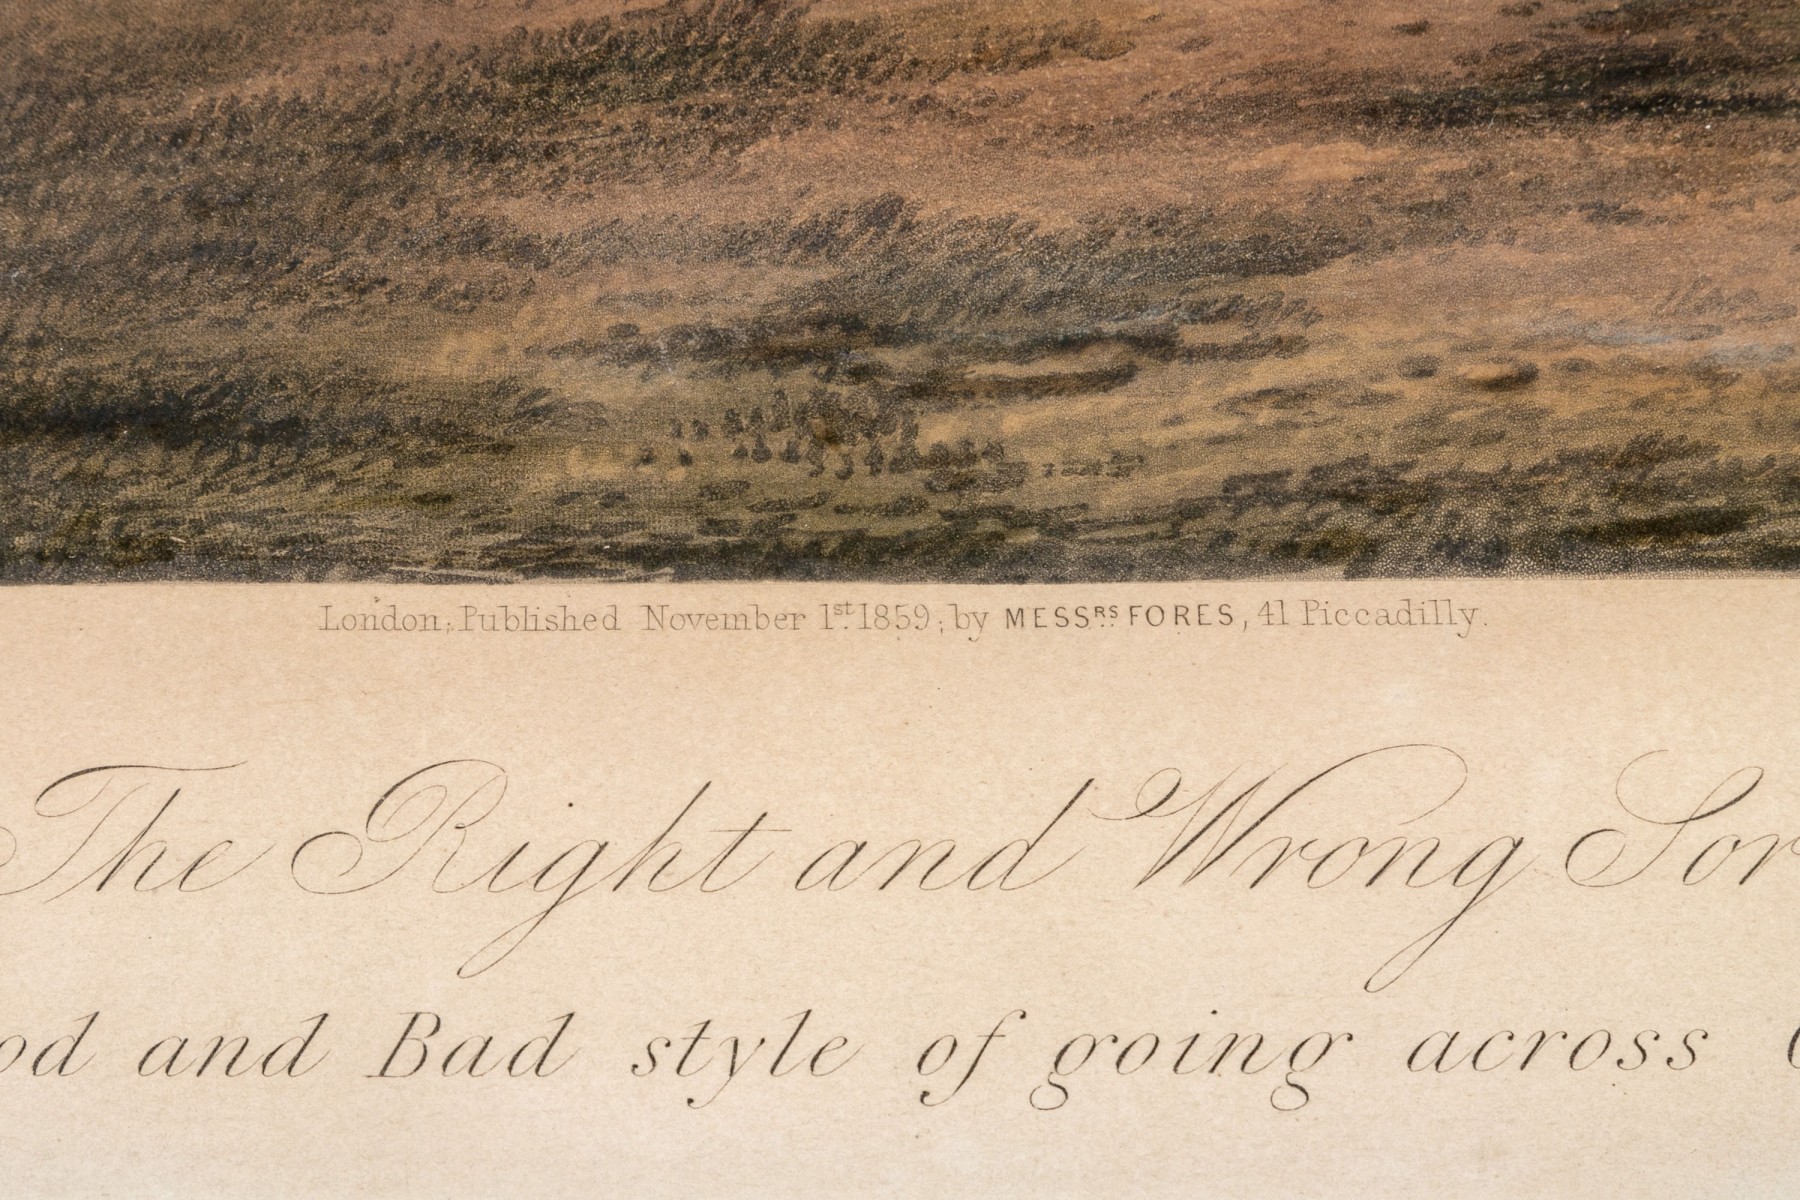 London; Published November 1st 1859; by MESSRS FORES, 41 Piccadilly.
The Right and Wrong Sor
od and Bad style of going across